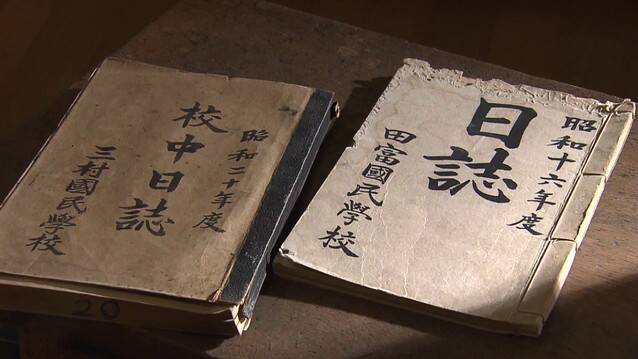 昭和二十年度
校中日誌
三村國民學校
20
昭和十六年度
日誌
田富國民學校